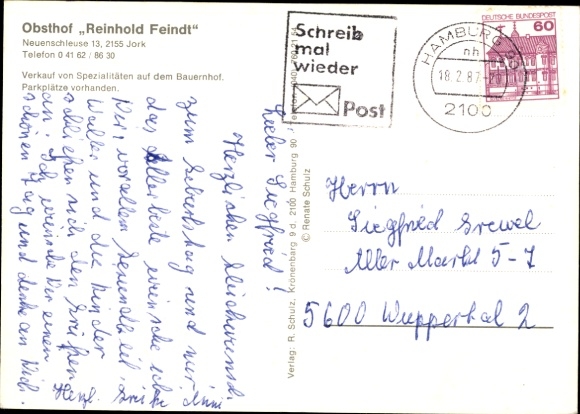 Obsthof „Reinhold Feindt"
Neuenschleuse 13, 2155 Jork
Telefon 0 41 62 / 86 30
Verkauf von Spezialitäten auf dem Bauernhof.
Parkplätze vorhanden.
Schreib
mal
wieder
Post
HAMBURG 90
nh
18.2.87-20
2100
DEUTSCHE BUNDESPOST
60
Lieber Siegfried!
Herzlichen Glückwunsch
zum Geburtstag und nur
das Allerbeste wünsche ich
Dir, vor allem Gesundheit.
Walter und die Kinder
schließen sich den Grüßen
an. Ich wünsche Dir einen
schönen Tag und denke an Dich.
Herzl. Grüße
Verlag: R. Schulz, Kronenbarg 9 d, 2100 Hamburg 90
© Renate Schulz
Herrn
Siegfried Grewel
Alter Markt 5-7
5600 Wuppertal 2